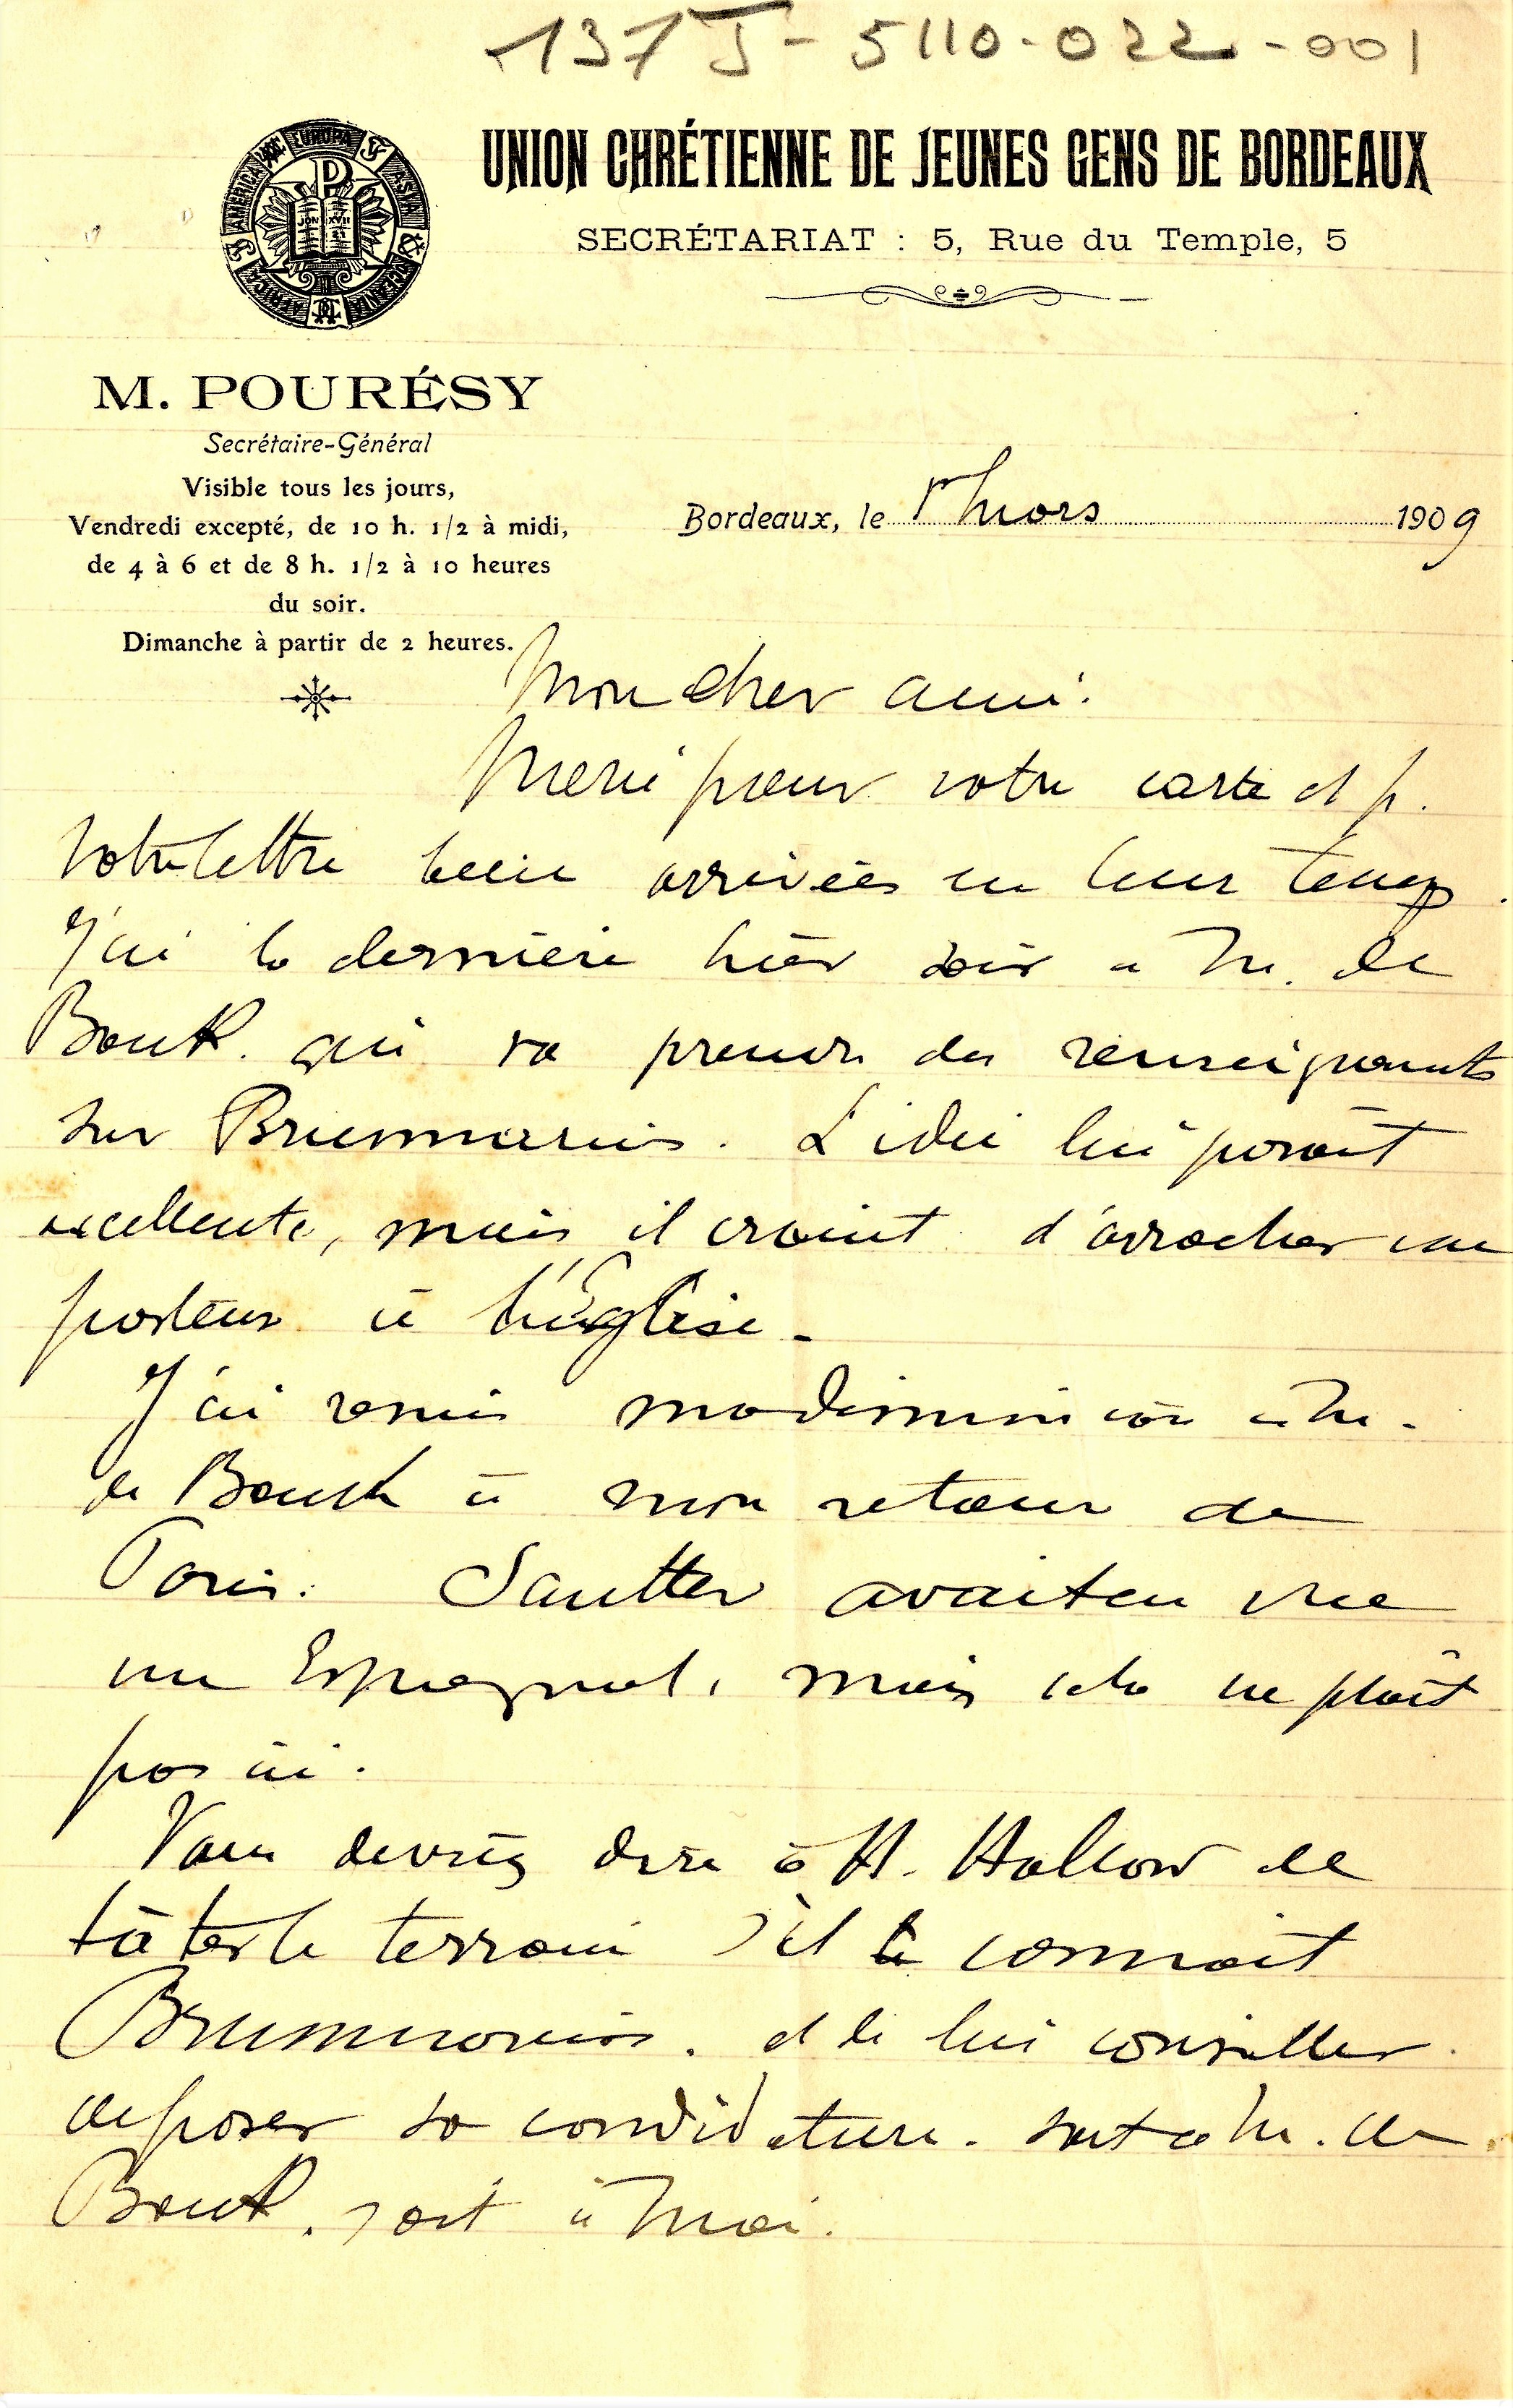 137 J - 5110-022-001
UNION CHRÉTIENNE DE JEUNES GENS DE BORDEAUX
SECRÉTARIAT : 5, Rue du Temple, 5
EUROPA ASIA OCEANIA AFRICA AMERICA
JON XVII
M. POURÉSY
Secrétaire-Général
Visible tous les jours,
Vendredi excepté, de 10 h. 1/2 à midi,
de 4 à 6 et de 8 h. 1/2 à 10 heures
du soir.
Dimanche à partir de 2 heures.
Bordeaux, le 1r Mars 1909
Mon cher ami.
Merci pour votre carte et p.
votre lettre bien arrivées en leur temps.
J'ai la dernière hier soir à M. de
Bouck. qui va prendre des renseignements
sur . L'idée lui paraît
excellente, mais il craint d'arracher un
pasteur à l'Église -
J'ai remis ma démission à M.
de Bouck à mon retour de
Paris. Sautter avait en vue
un Espagnol, mais cela ne plaît
pas ici.
Vous devriez dire à H. de
tâter le terrain s'il connait
. et de lui conseiller
de poser sa candidature. soit à M. de
Bouck. soit à moi.